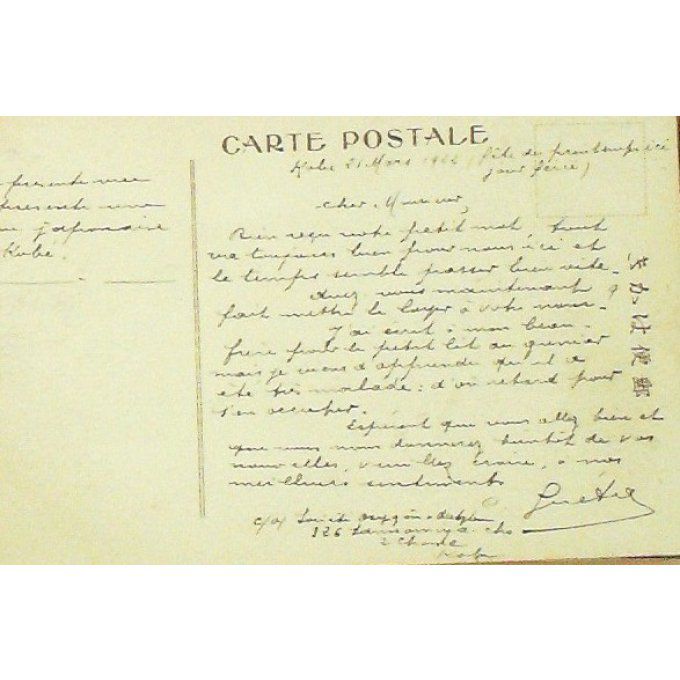 CARTE POSTALE
Kobe 21 Mars (fête du printemps ici
jour férié)
présente une
présente une
japonaise
Kobé.
Cher Monsieur,
Bien reçu votre petit mot, tout
va toujours bien pour nous ici et
le temps semble passer bien vite.
Avez vous maintenant
fait mettre le loyer à votre nom?
J'ai écrit à mon beau-
frère pour le petit lit au grenier
mais je viens d'apprendre qu'il a
été très malade: d'où retard pour
s'en occuper.
Espérant que vous allez bien et
que vous nous donnerez bientôt de vos
nouvelles, veuillez croire, à nos
meilleurs sentiments
c/o Société
126 cho
2 Chome
Kobe
きがは便郵